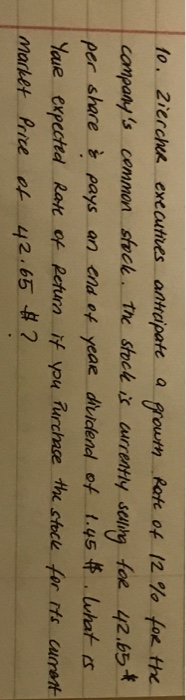 10. Ziercher executives anticipate a growth Rate of 12% for the
company's common stock. The stock is currently selling for 42.65 $
per share & pays an end of year dividend of 1.45 $. What is
Your expected Rate of Return if you Purchase the stock for its current
market Price of 42.65 $?